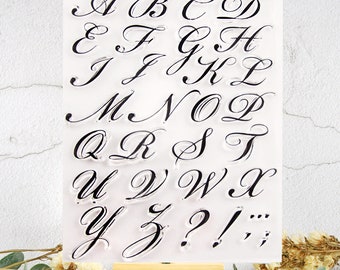 A B C D
E F G H
I J K L
M N O P
Q R S T
U V W X
Y Z ? ! , : ;